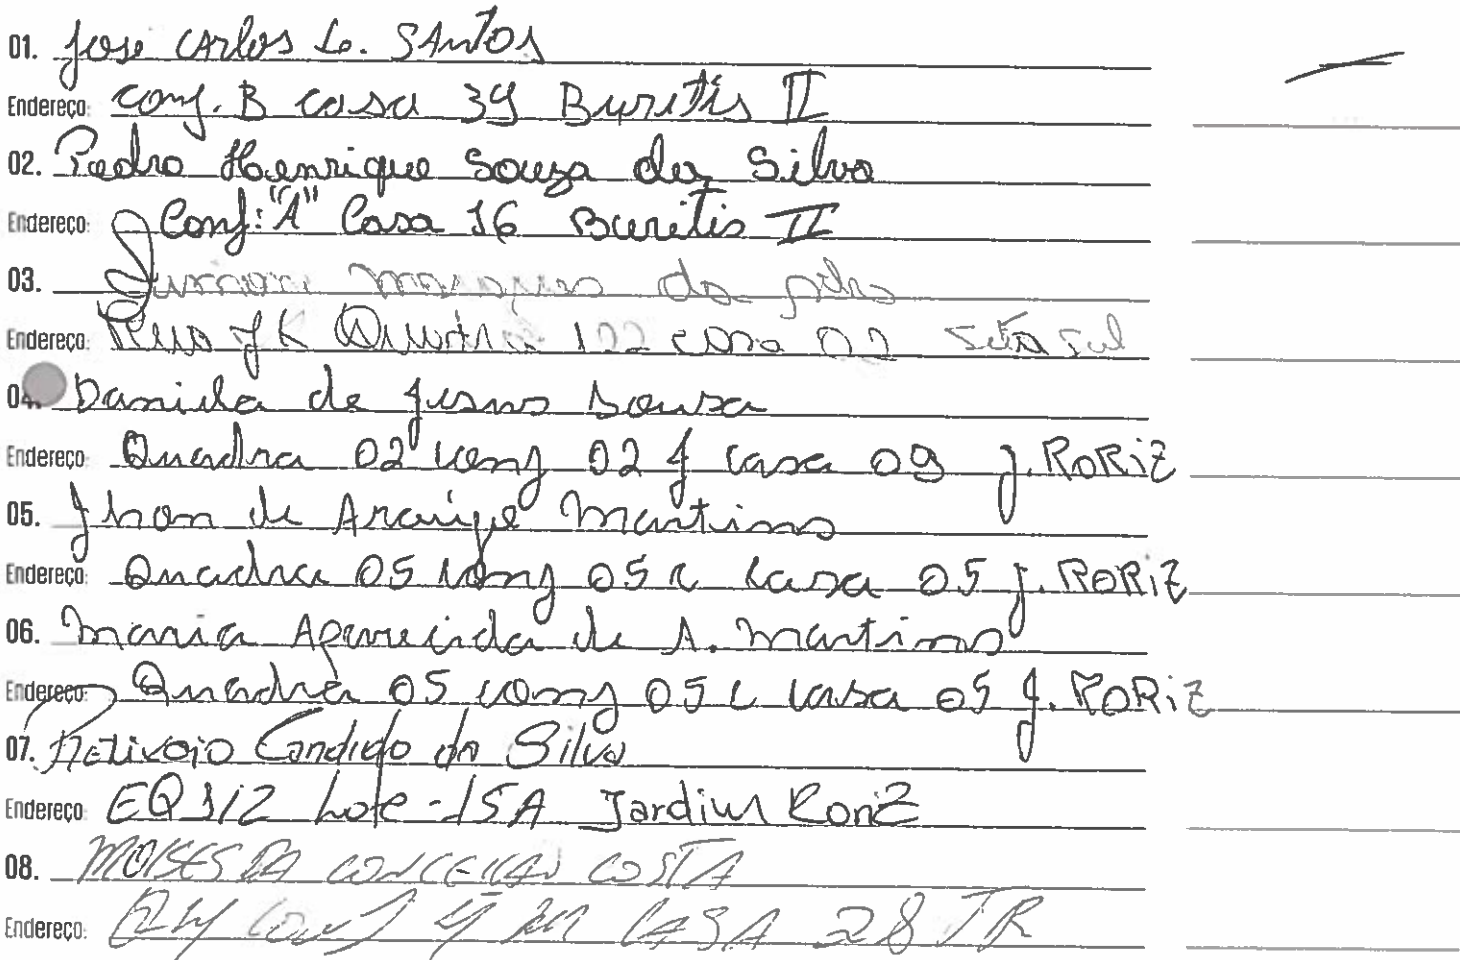 01. Jose CARlos S. SANTOS
Endereço: conj. B casa 39 Buritis II
02. Pedro Henrique Souza da Silva
Endereço: Conj: "A" Casa 16 Buritis II
03. da
Endereço: JK Quadra 122 casa 02 Seta Sul
04. Daniela de Jesus Sousa
Endereço: Quadra 02 conj 02 J casa 09 J. RORiZ
05. Jhon de Araújo Martins
Endereço: Quadra 05 conj 05 C casa 05 J. RORiZ
06. Maria Aparecida de A. Martins
Endereço: Quadra 05 conj 05 C casa 05 J. RORiZ
07. Candido da Silva
Endereço: EQ 1/2 Lote-15A Jardim Roriz
08. MOISES DA CONCEICAO COSTA
Endereço: Q4 CONJ 4 CASA 28 JR